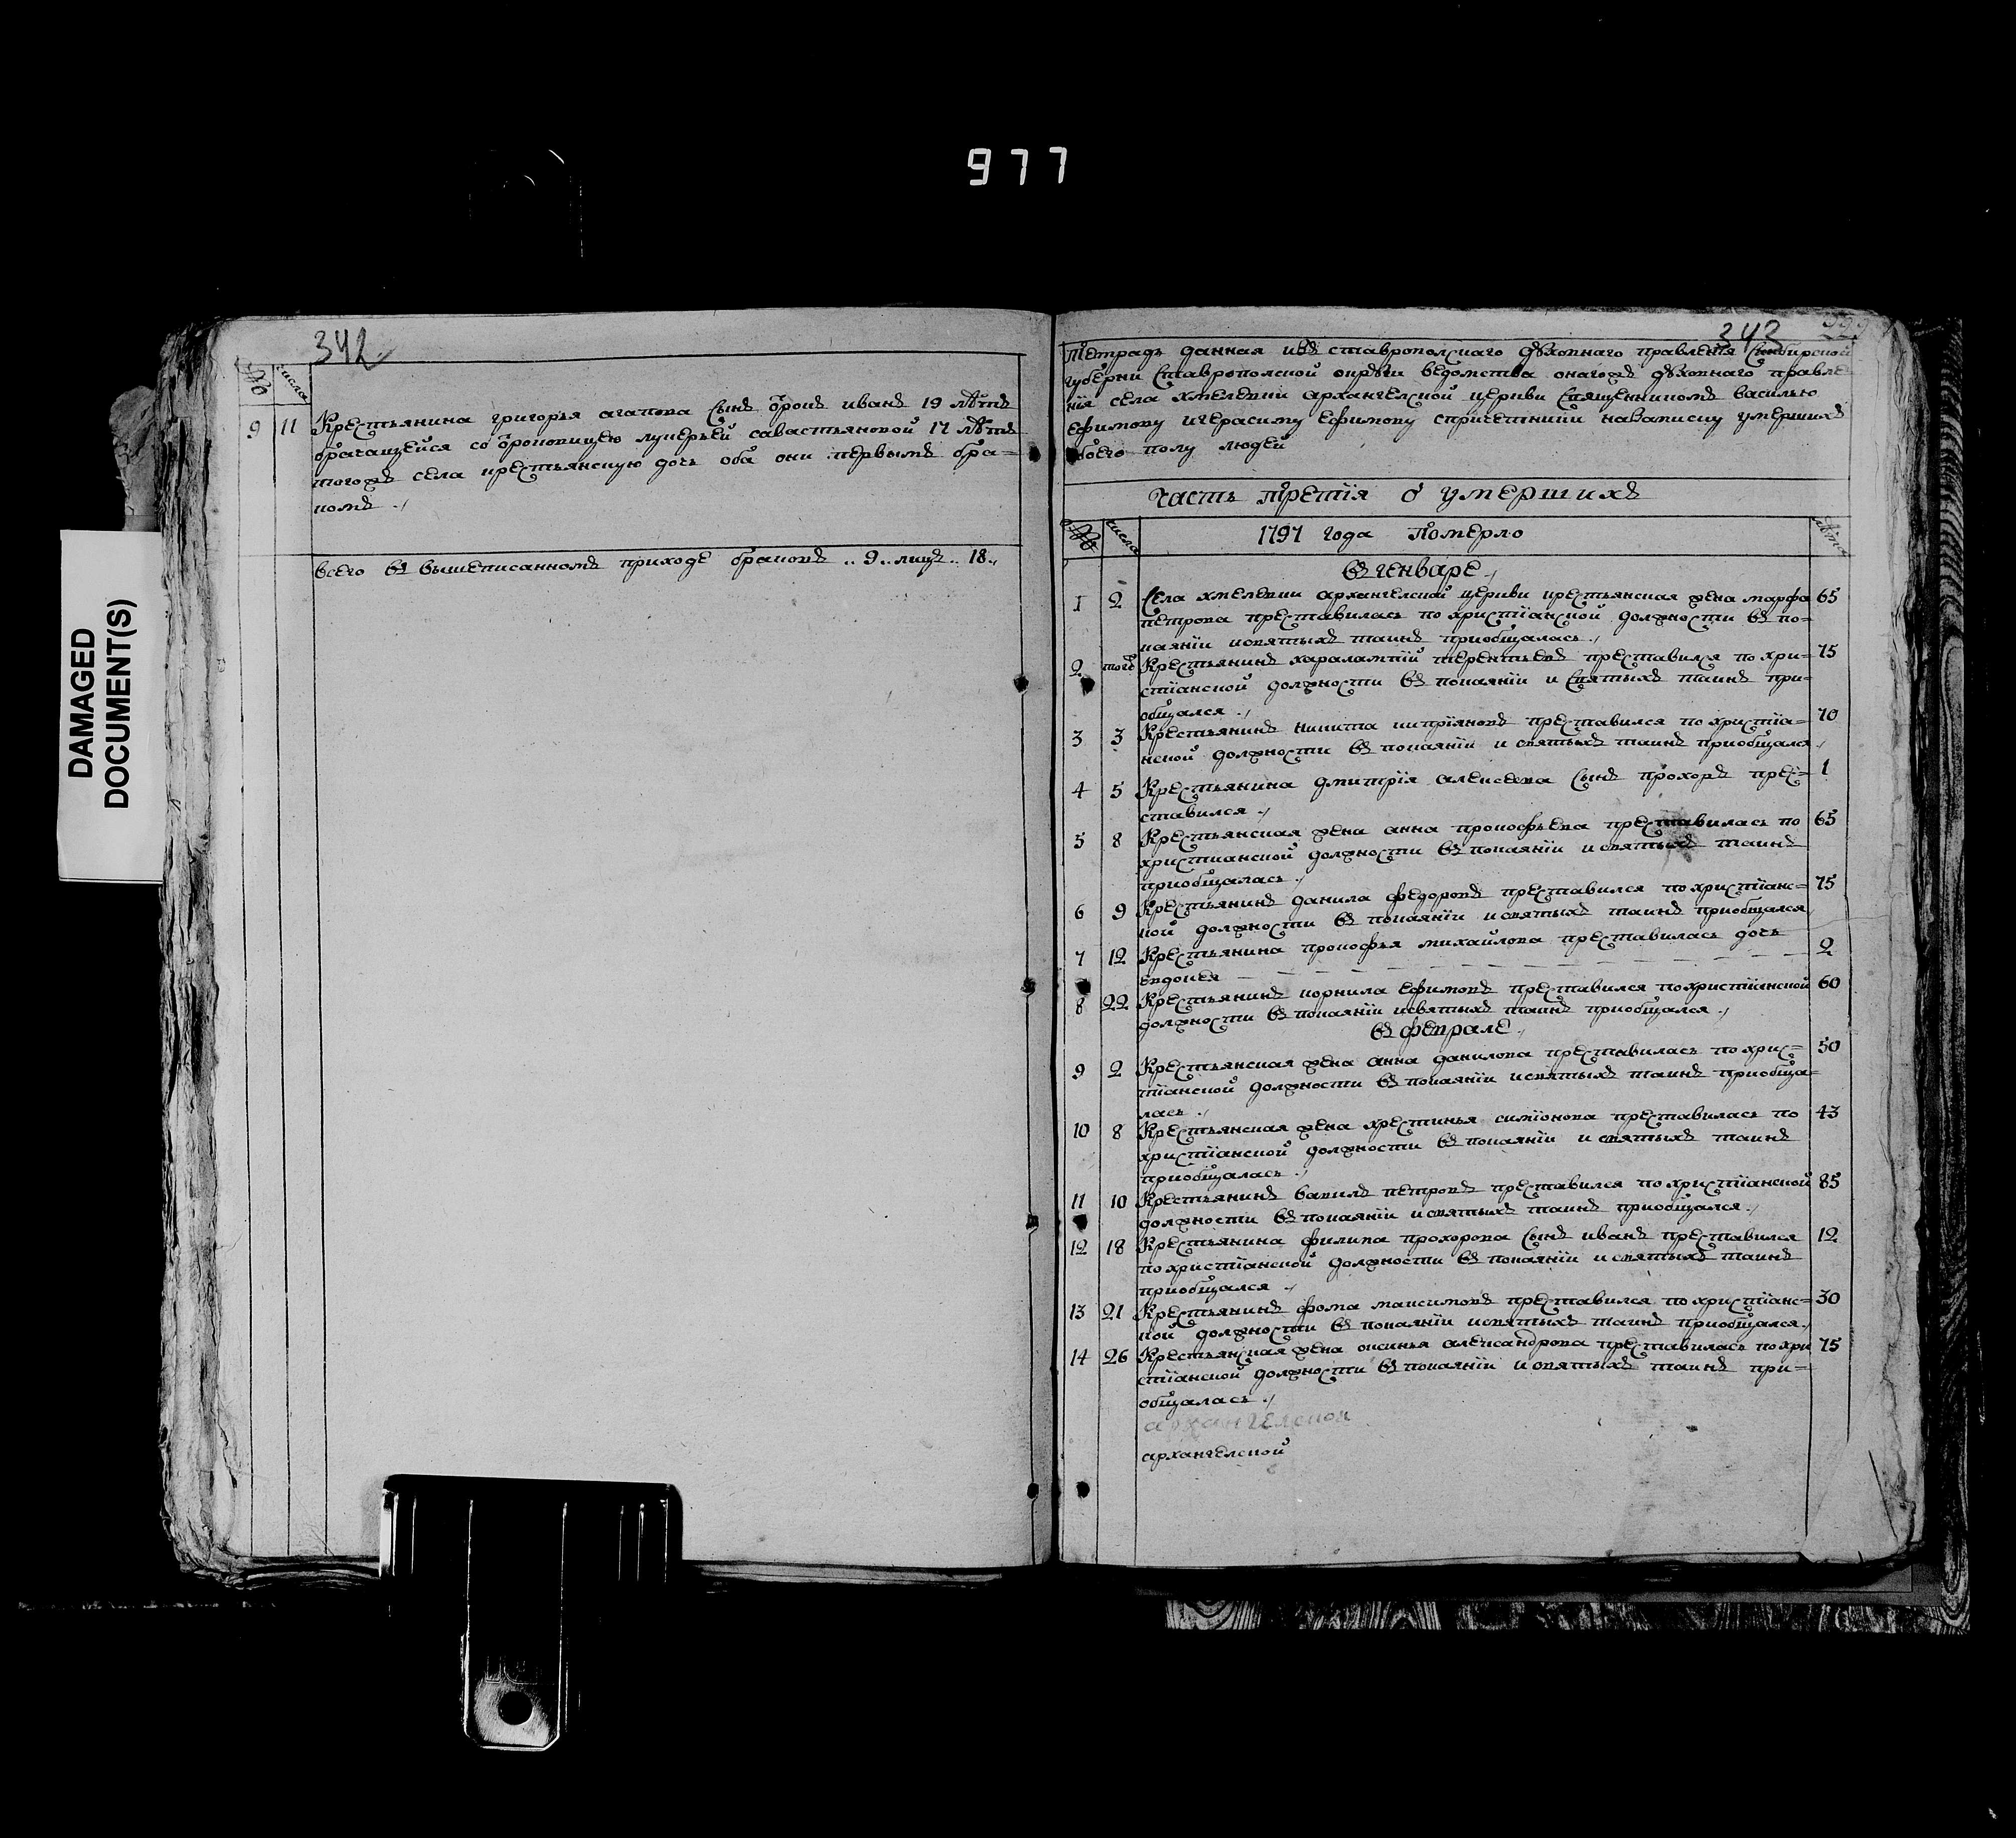 977
DAMAGED
DOCUMENT(S)
342
№ числа
9 11 Крестьянина григорья агапова сынъ отрокъ иванъ 19 лѣтъ
сочащейся со отроковицею лукерьей савастьяновой 17 лѣтъ
тогожъ села крестьянскую дочь оба они первымъ бра=
комъ
всего въ вышеписанномъ приходе браковъ .. 9 .. лицъ .. 18
343
Тетрадь данная изъ ставрополскаго духовнаго правления Симбирской
губерни Ставрополской округи ведомства онагожъ духовнаго правле
нія села хмелевки архангелской церкви Священникомъ василью
Ефимову игерасиму Ефимову спричетники назаписку умершихъ
обоего полу людей
Часть третїя о умершихъ
№ числа 1797 года Померло лѣта
въ генваре
1 2 Села хмелевки архангелской церкви крестьянская жена марфа 65
петрова преставилась по христїанской должности въ по=
каянїи исвятыхъ таинъ приобщалась
2 тогожъ Крестьянинъ харалампїй терентьевъ преставился по хри= 75
стїанской должности въ покаянїи и Святыхъ таинъ при=
общался
3 3 Крестьянинъ никита киприяновъ преставился по христїа= 70
нской должности въ покаянїи и святыхъ таинъ приобщался
4 5 Крестьянина дмитрїя алексеева сынъ прохоръ прес= 1
тавился
5 8 Крестьянская жена анна прокофьева преставилась по 65
христианской должности въ покаянїи исвятыхъ таинъ
приобщалась
6 9 Крестьянинъ данила федоровъ преставился по христїанс= 75
кой должности въ покаянїи исвятыхъ таинъ приобщался
7 12 Крестьянина прокофья михайлова преставилась дочь 2
евдокея
8 22 Крестьянинъ корнила Ефимовъ преставился похристїанской 60
должности въ покаянїи исвятыхъ таинъ приобщался
въ феврале
9 2 Крестьянская жена анна данилова преставилась по хрис= 50
тїанской должности въ покаянїи исвятыхъ таинъ приобща=
лась
10 8 Крестьянская жена хрестинья симїонова преставилась по 43
христїанской должности въ покаянїи и святыхъ таинъ
приобщалась
11 10 Крестьянинъ вавилъ петровъ преставился по христїанской 85
должности въ покаянїи исвятыхъ таинъ приобщался
12 18 Крестьянина филипа прохорова сынъ иванъ преставился 12
по христїанской должности въ покаянїи и святыхъ таинъ
приобщался
13 21 Крестьянинъ фома максимовъ преставился по христїанс= 30
кой должности въ покаянїи исвятыхъ таинъ приобщался
14 26 Крестьянская жена оксинья александрова преставилась по хри 75
стїанской должности въ покаянїи и святыхъ таинъ при=
общалась
архангелской
архангелской